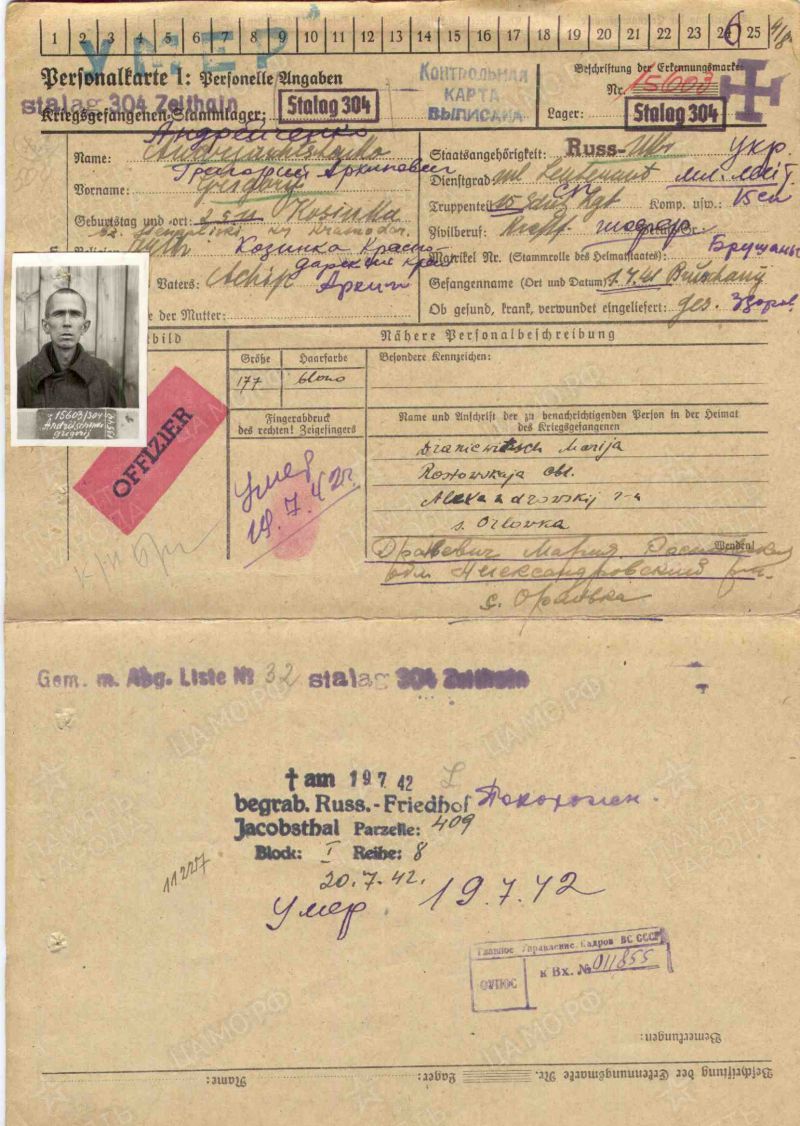 1 2 3 4 5 6 7 8 9 10 11 12 13 14 15 16 17 18 19 20 21 22 23 24 25
УМЕР
6
Personalkarte I: Personelle Angaben
Kriegsgefangenen-Stammlager:
stalag 304 Zeithain
Stalag 304
КОНТРОЛЬНАЯ
КАРТА
ВЫПИСАНА
Beschriftung der Erkennungsmarke
Nr. 15603
Lager: Stalag 304
Андрейченко
Name:
Григорий Архипович
Vorname: Grigorij
Geburtstag und -ort: Kosinka
Козинка Красно
дарский край
Vaters: Archip
Архип
e der Mutter:
Staatsangehörigkeit: Russ- Ukr укр.
Dienstgrad: ml. Leutenant мл. лейт.
Truppenteil: Rgt Komp. usw.:
Zivilberuf: шофер
Matrikel Nr. (Stammrolle des Heimatstaates):
Gefangenname (Ort und Datum): 1.7.41
Ob gesund, krank, verwundet eingeliefert: ges. здоров
tbild
15603/304
Grigorij
OFFIZIER
Nähere Personalbeschreibung
Größe Haarfarbe
177 blond
Besondere Kennzeichen:
Fingerabdruck
des rechten! Zeigefingers
Умер
19.7.42г.
Name und Anschrift der zu benachrichtigenden Person in der Heimat
des Kriegsgefangenen
Marija
Rostovskaja obl.
s. Orlovka
Wenden!
Мария
обл Александровский
с. Орловка
Gem. m. Abg. Liste № 32 stalag 304 Zeithain
† am 19 7 42
begrab. Russ.-Friedhof
Jacobsthal Parzelle: 409
Block: I Reihe: 8
20.7.42.
Похоронен.
11227
Умер 19.7.42
Главное Управление Кадров ВС СССР
к Вх. № 011855
Bemerkungen:
Name:
Lager:
Beschriftung der Erkennungsmarke Nr.
ЦАМО РФ
ПАМЯТЬ